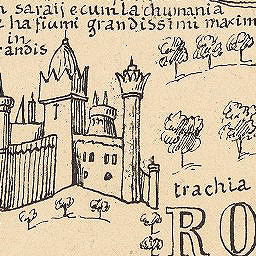 n saraij e cuni la chumania
z ha fiumi grandissimi maxim
in
randis
trachia
RO